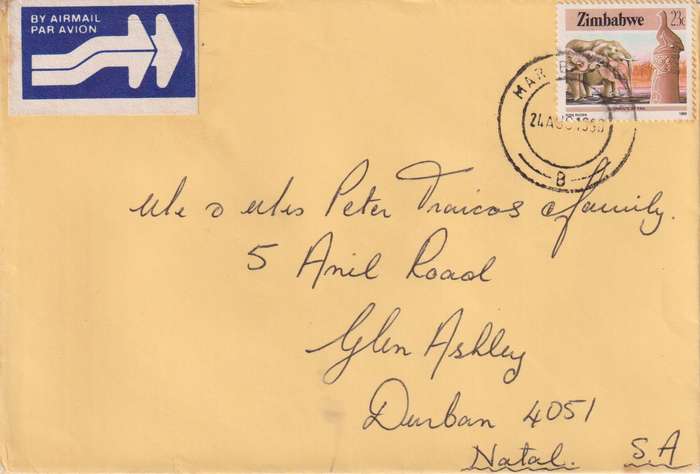 BY AIRMAIL
PAR AVION
Zimbabwe 23c
MAR
24 AUG 198
B
Mr & Mrs Peter Traicos & family.
5 Anil Road
Glen Ashley
Durban 4051
Natal. SA